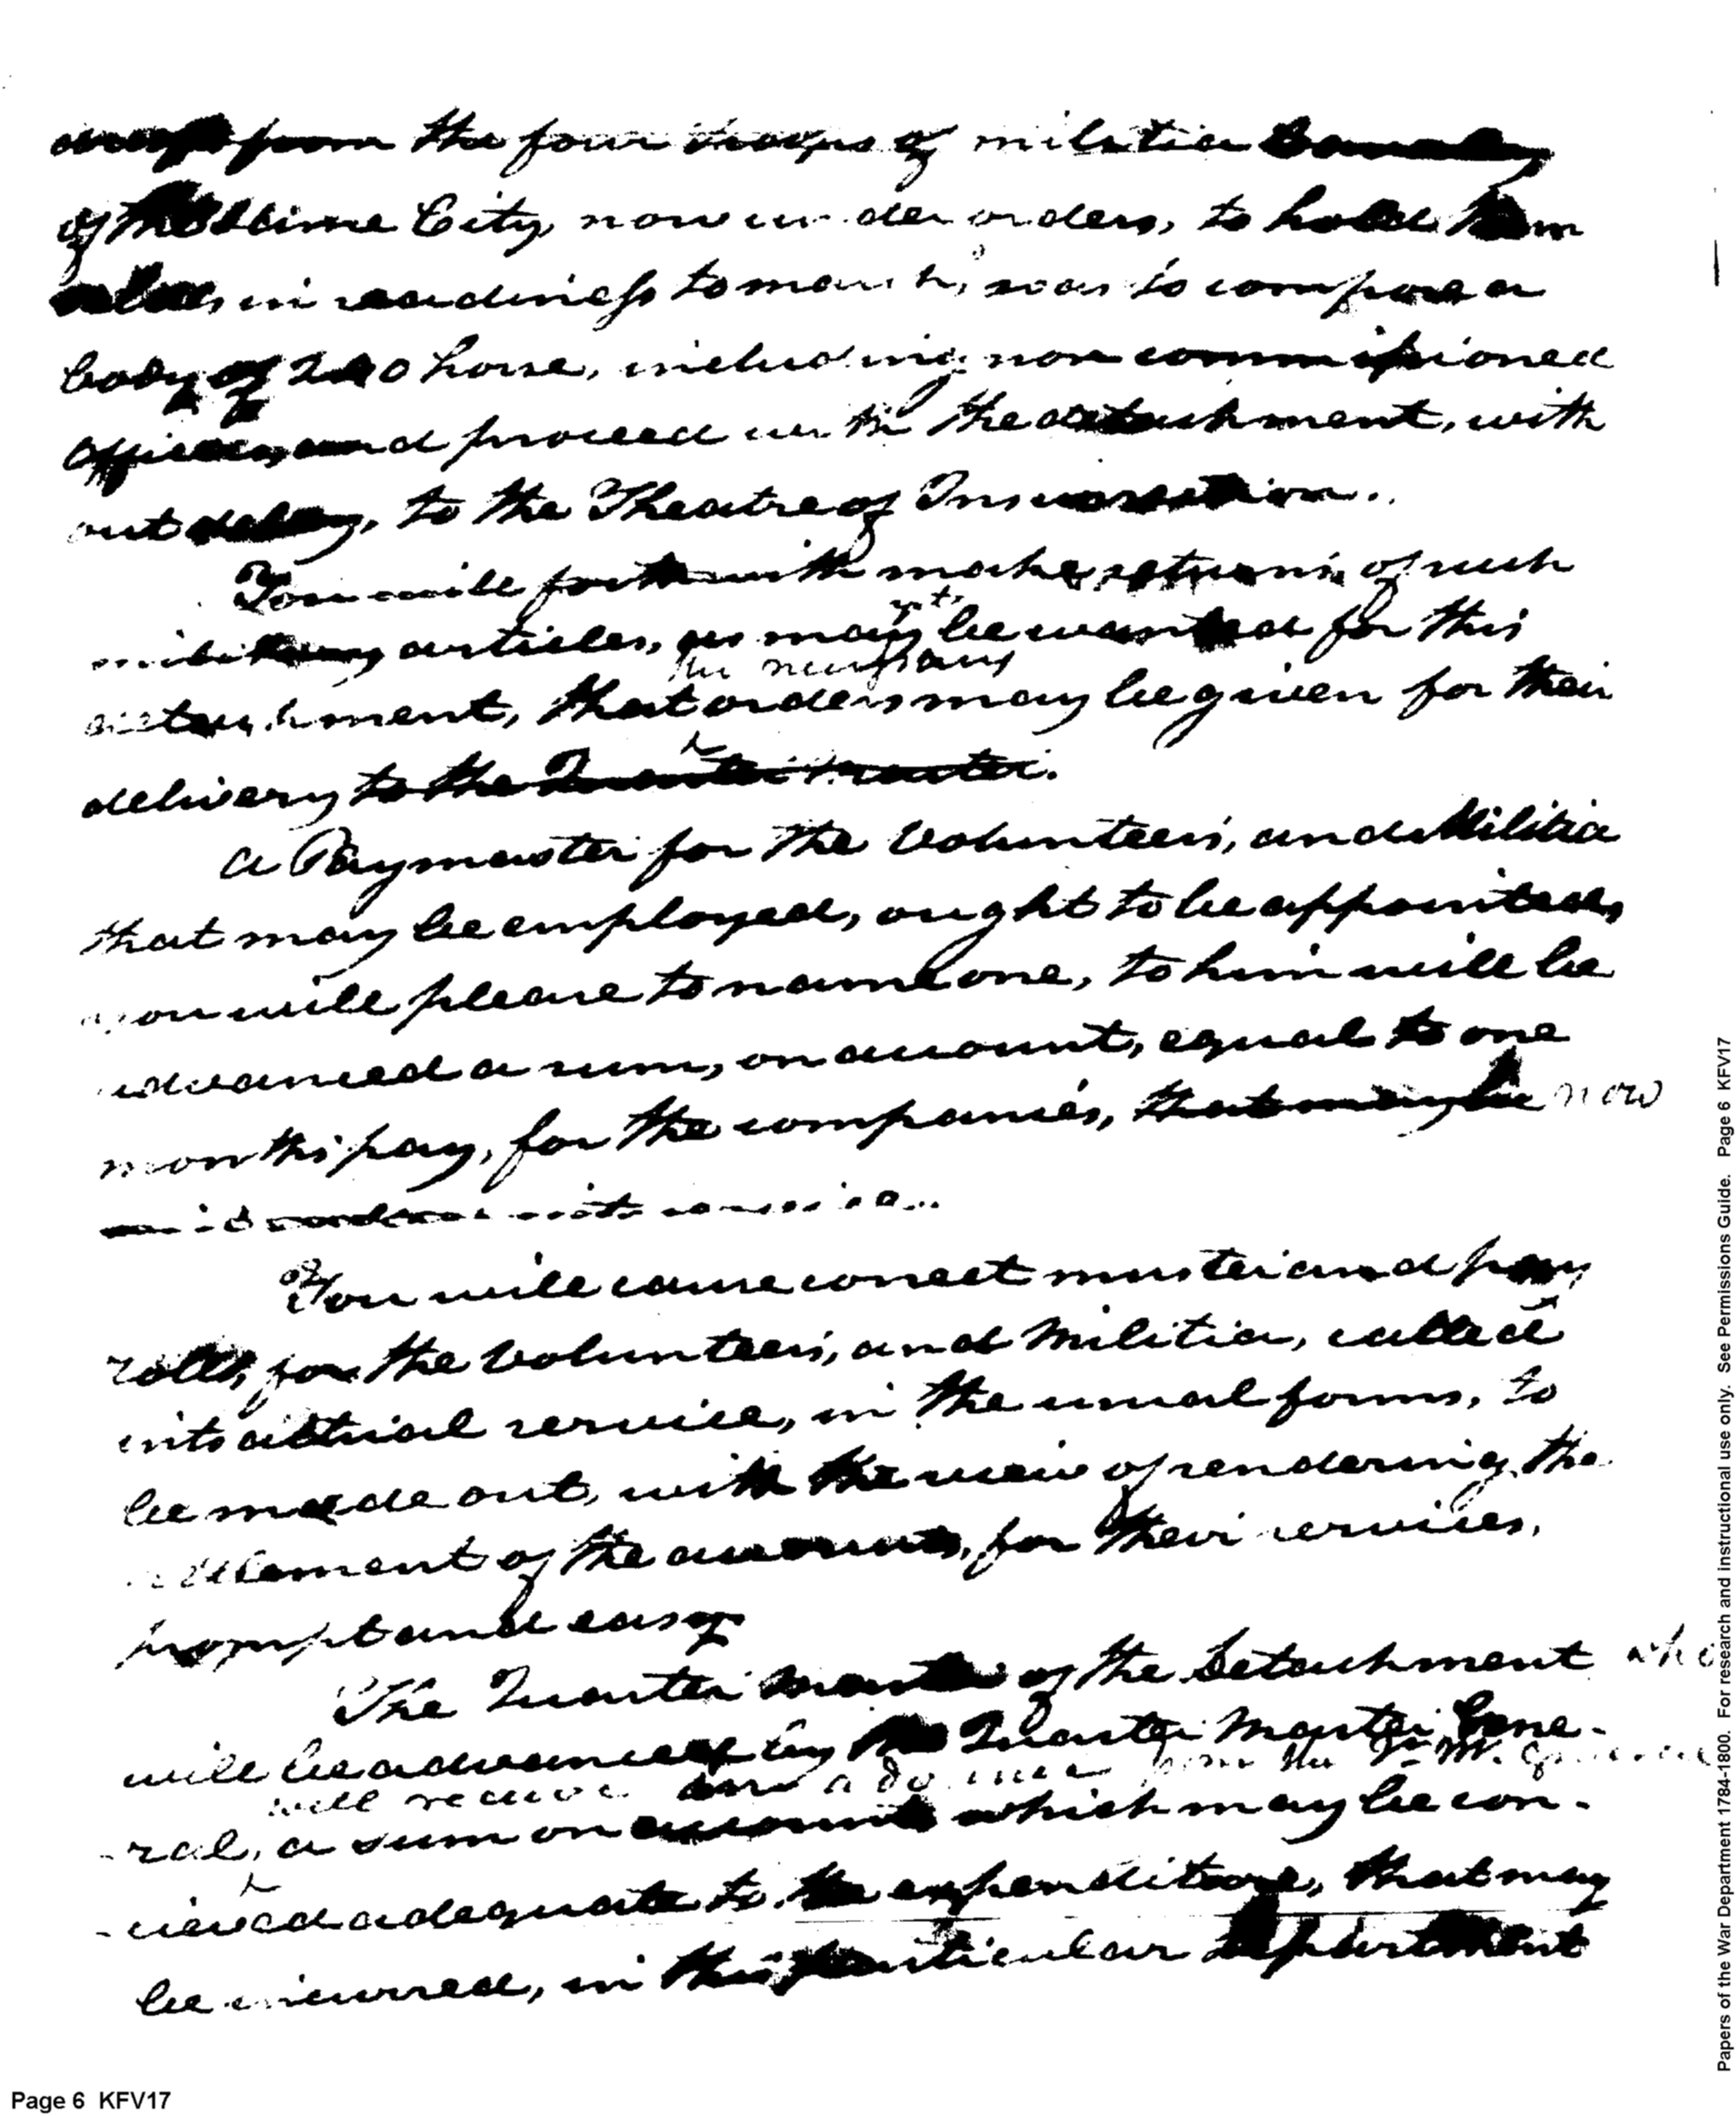 draft from the four troops of militia Cavalry
of the same City, now under orders, to hold them
selves, in readiness to march, so as to compose a
body of 240 horse, including non commissioned
officers, and proceed with the detachment, with
out delay, to the Theatre of Insurrection.
You will forthwith make returns of such
military articles, as may yet be wanted for this
detachment, that the necessary orders may be given for their
delivery to the Quarter Master.
A Paymaster for the Volunteers, and Militia
that may be employed, ought to be appointed,
you will please to name one, to him will be
advanced a sum, on account, equal to one
months pay, for the companies, that may be now
into service.
You will cause correct muster and pay
rolls, for the Volunteers, and Militia, called
into actual service, in the usual forms, to
be made out, with the view of rendering the
settlement of the accounts, for their services,
prompt and easy
The Quarter Master of the Detachment who
will be advanced by the Quarter Master Gene-
will receive an advance from the Q. M. General
-ral, a sum on account which may be con-
-ceived adequate to the expenditure, that may
be incurred, in this particular department
Page 6 KFV17
Papers of the War Department 1784-1800. For research and instructional use only. See Permissions Guide. Page 6 KFV17